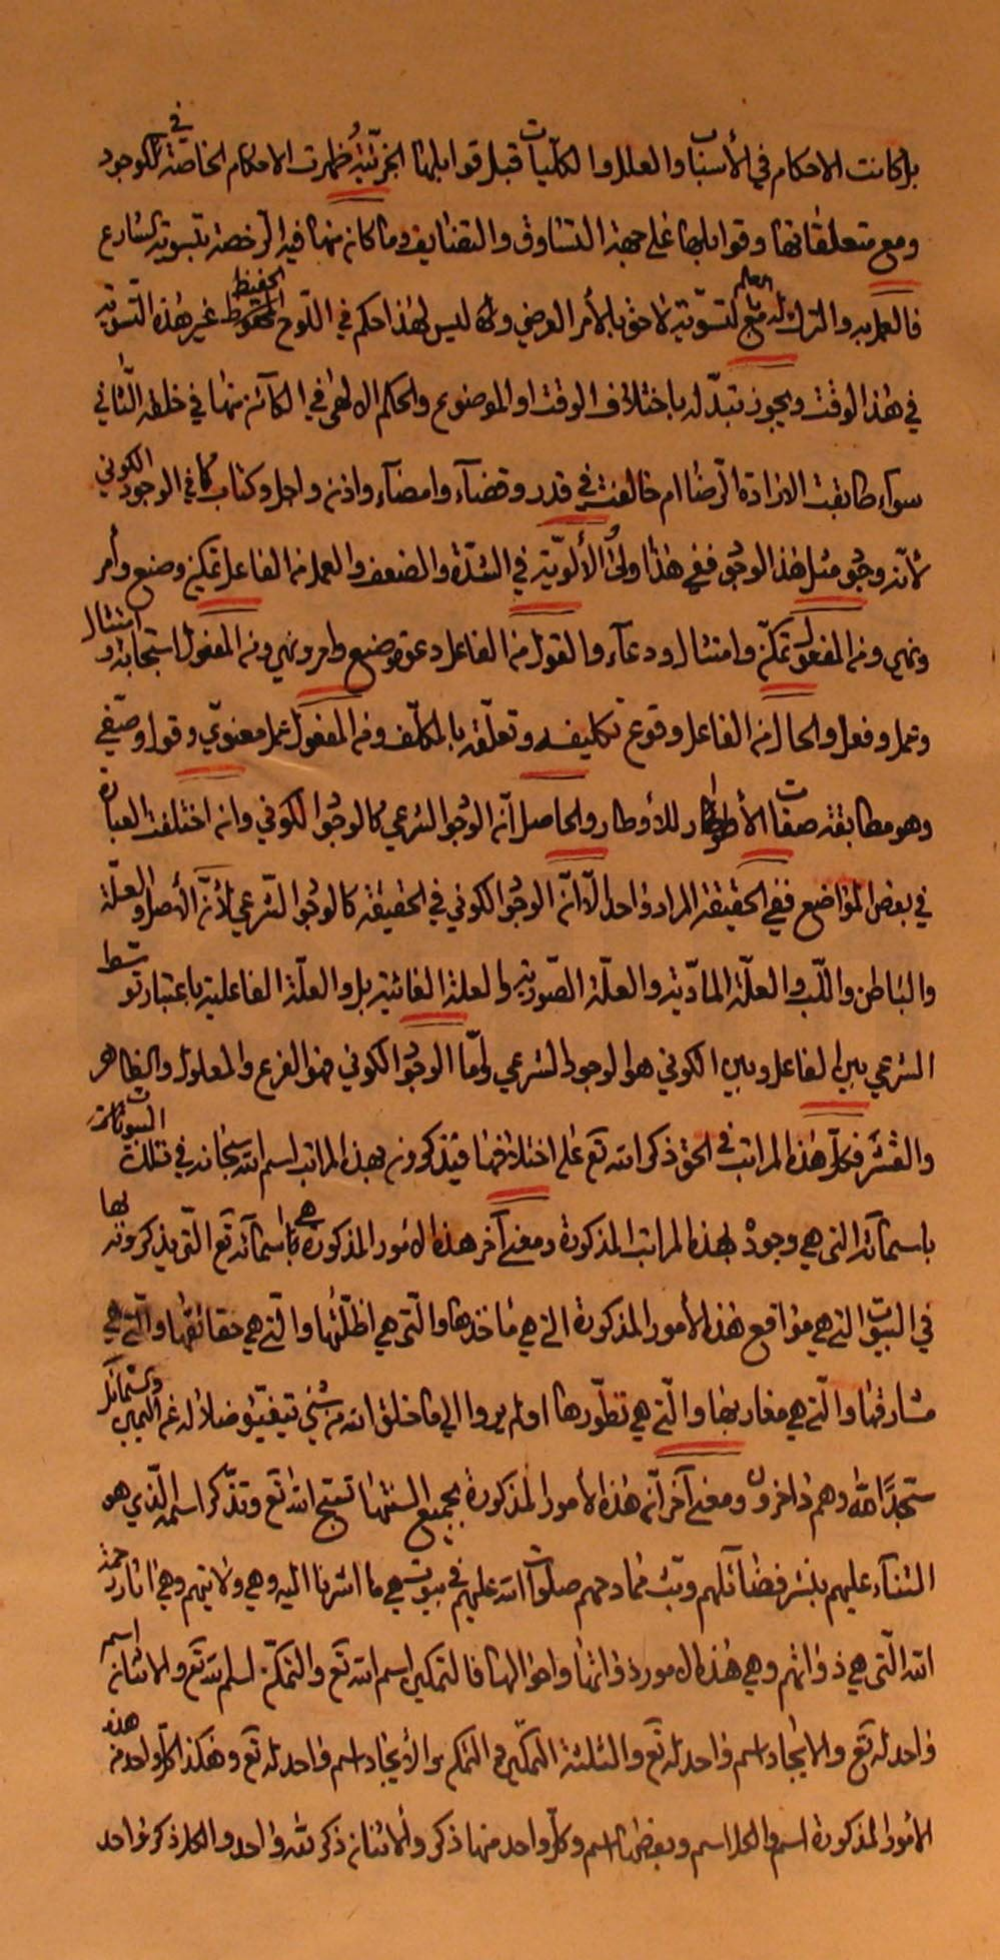 بل كانت الاحكام في الأسباب والعلل والكليات قبل قوابلها الجزئية وظهرت الاحكام الخاصة في الوجود
ومع متعلقاتها وقوابلها على جهة التساوق والتضايف وما كان منها فيه الرخصة بتسوية الشارع
فالعمل به والترك له مع العلم لتسويته لاحق بالأمر العرضي ولأنه ليس لهذا حكم في اللوح المحفوظ الحفيظ غير هذه التسوية
في هذا الوقت ويجوز تبدله باختلاف الوقت او الموضوع والحكم الالهي في الكائن منها في خلقه الثاني
سواء طابقت الارادة الرضا ام خالفت في قدر وقضآء وامضآء واذن واجل وكتاب كما في الوجود الكوني
لأنه وجود مثل هذا الوجود ففي هذا ولي الألوية في الشدة والضعف والعمل من الفاعل تمكين وصنع وأمر
ونهي ومن المفعول تمكن وامتثال ودعآء والقول من الفاعل دعوة وصنع وامر ونهي ومن المفعول استجابة وامتثال
وعمل وفعل والحال من الفاعل وقوع تكليفه وتعلقه بالمكلف ومن المفعول عمل معنوي وقول وصفي
وهو مطابقة صفات الأطوار للأوطار والحاصل أن الوجود الشرعي كالوجود الكوني وان اختلفت العبارة
في بعض المواضع ففي الحقيقة المراد واحد إلا أن الوجود الكوني في الحقيقة كالوجود الشرعي لأنه الأصل والعلة
والباطن واللب والعلة المادية والعلة الصورية والعلة الغائية بل والعلة الفاعلية باعتبار توسط
الشرعي بين الفاعل وبين الكوني هو الوجود الشرعي واما الوجود الكوني فهو الفرع والمعلول والظاهر
والقشر فكل هذه المراتب في الحق ذكر الله تع على اختلافها فيذكرون بهذه المراتب اسم الله سبحانه في تلك البيوتات
باسمائه التي هي وجوده بهذه المراتب المذكورة ومعنى آخر هذه الامور المذكورة هي اسمائه تع التي يذكرونه بها
في البيوت التي هي مواقع هذه الأمور المذكورة التي هي مأخذها والتي هي اظلتها والتي هي حقائقها والتي هي
مشارقها والتي هي مغاربها والتي هي تطورها اولم يروا الى ما خلق الله من شيئ يتفيؤ ظلاله عن اليمين والشمائل
سجدا لله وهم داخرون ومعنى آخر أن هذه الأمور المذكورة بجميع السنتها تسبح الله تع وتذكر اسمه الذي هو
الثناء عليهم بنشر فضائلهم وبث ممادحهم صلوات الله عليهم في بيوت هي ما اشرنا اليه وهي ولايتهم وهي اثار رحمة
الله التي هي ذواتهم وهي هذه الامور ذواتها واحوالها فالتمكين اسم لله تع والتمكن اسم لله تع والاثنان اسم
واحد له تع والايجاد اسم واحد له تع والثلثة التمكين والتمكن والأيجاد اسم واحد له تع وهكذا كل واحد من هذه
الأمور المذكورة اسم والكل اسم وبعضها اسم وكل واحد منها ذكر والاثنان ذكر لله واحد والكل ذكر واحد